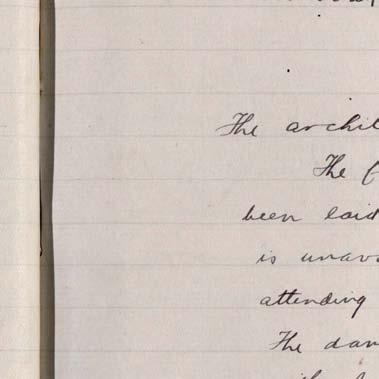 The archi
The
been laid
is unav
attending
The dan